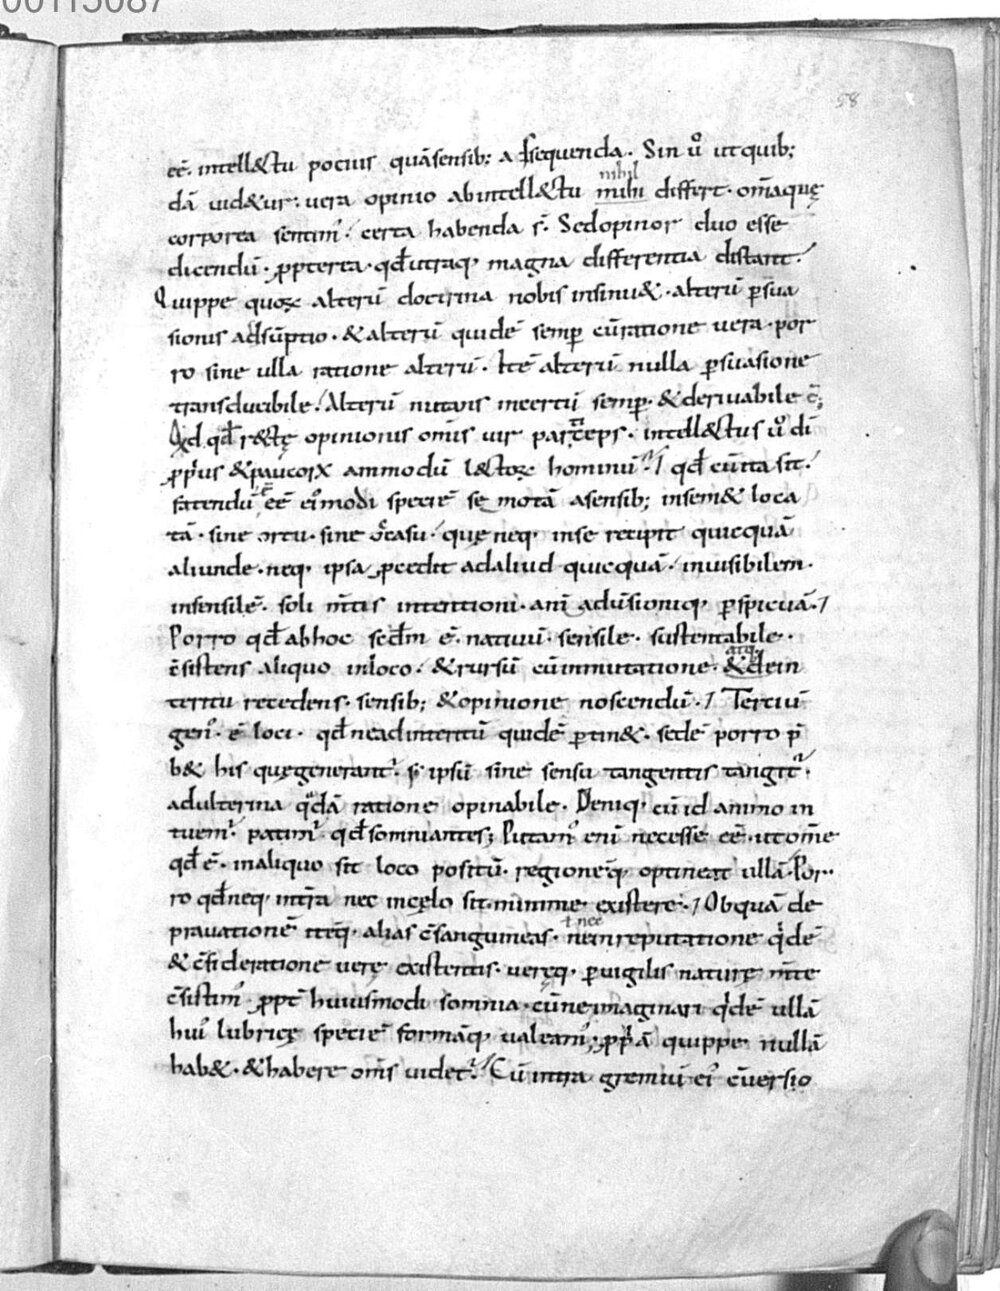 00115087
58
eē. intell&tu pocius quāsensib; assequenda. Sin ů ut quib;
dā uid&ur: uera opinio abintell&tu mihi differt. om̄aquę
nihil
corporea sentim᷒: certa habenda s̄. Sedopinor duo esse
dicendū. ꝓpterea. qđutraq; magna differentia distant:
Quippe quoꝝ alterū doctrina nobis insinu&. alterū ꝑsua
sionis adsūptio. &alterū quidē semꝑ cūratione uera. por
ro sine ulla ratione alterū. Itē alterū nulla ꝑsuasione
transducibile: Alterū nutans incertū semꝑ. &deriuabile
Qd qđ r&tę opinionis om̄is uir particeps. intell&tus ů di
ꝓpius &paucoꝝ ammodū l&toꝝ hominū: qđ cūita sit:
fatendū eē ei᷒modi speciē semotā asensib; insem& loca
tā. sine ortu. sine occasu: quę neq; inse recipit quicquā
aliunde. neq; ipsa ꝓcedit adaliud quicquā: inuisibilem.
insensilē. soli m̄tis intentioni. anī aduersioniq; ꝑspicuā.
Porro qđ abhoc secđm ē. natiuū. sensile. sustentabile.
c̄sistens aliquo inloco: &rursū cūinmutatione. &dein
atq;
teritu recedens. sensib; &opinione noscendū. Terciū
gen᷒. ē loci. qđ neadinteritū quidē ꝑtin&. sedē porro p̄
b& his quęgenerant᷑. s; ipsū sine sensu tangentis tangit᷑.
adulterina qͣdā ratione opinabile. Deniq; cūid animo in
tuem᷑. patim᷑ qđsomniantes; Putam᷒ enī necesse eē. ut om̄e
qđ ē. inaliquo sit loco positū. regionēq; optineat ullā. Por
ro qđneq; int̄ra nec incęlo sit. minime existere. Obquā de
prauationē itēq; alias c̄sanguineas. neinreputatione qͥdē
ł nec
&c̄sideratione uerę existentis. uereq; ꝑuigilis naturę m̄te
c̄sistim᷒. ꝓpt̄ huiusmodi somnia. cūneimaginari qͥdē ullā
hui᷒ lubricę speciē formāq; ualeam᷒; ꝓpͥā quippe nullā
hab&. &habere om̄is uidet᷑. Cū intra gremiū ei᷒ c̄uersio